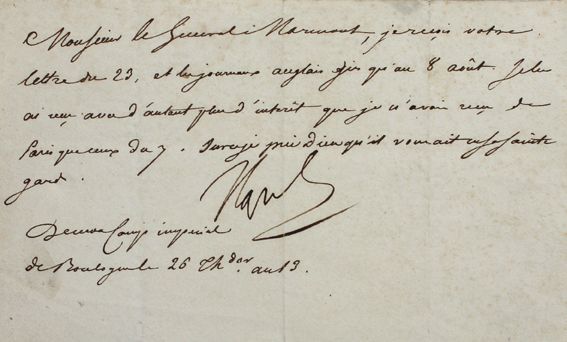 Monsieur le General Marmont, je reçois votre
lettre du 23, et les journaux anglais jusqu'au 8 août. Je les
ai reçu avec d'autant plus d'intérêt que je n'avois reçu de
Paris que ceux du 7. Sur ce je prie Dieu qu'il vous ait en sa sainte
garde.
Nap
De mon Camp impérial
de Boulogne le 26 Th.dor an 13.